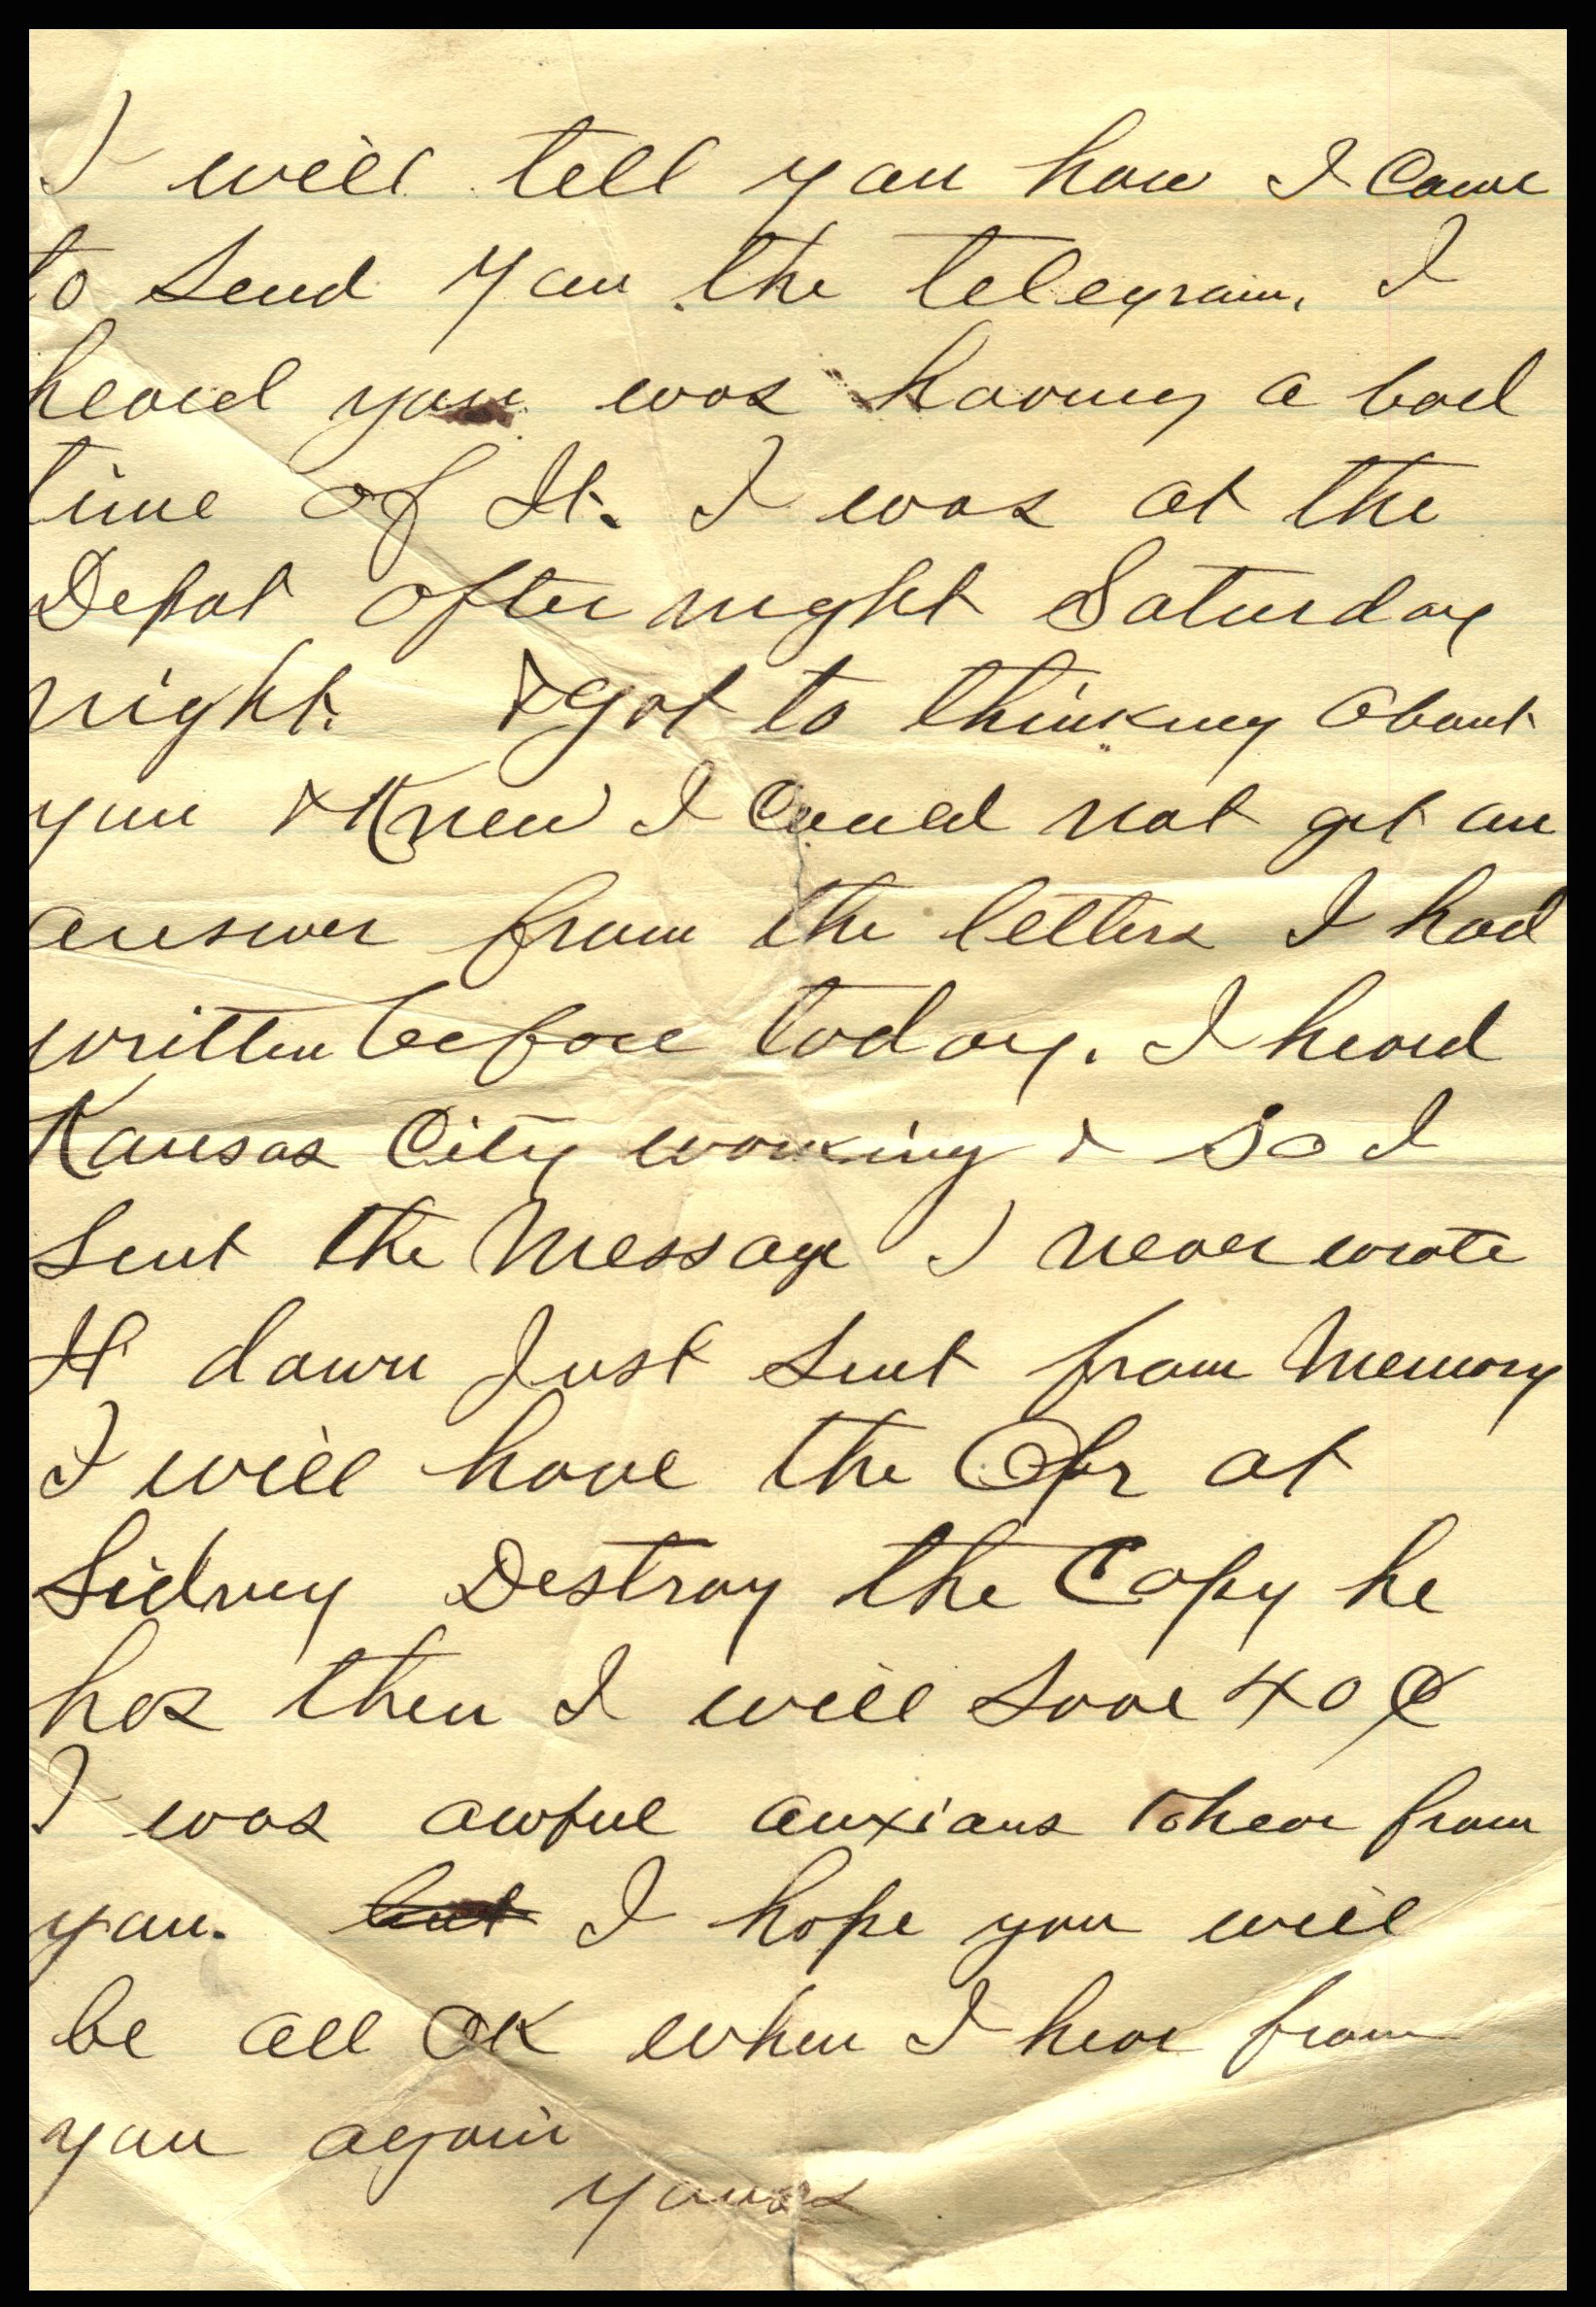 I will tell you how I Came
to Send You the telegram. I
heard you was having a bad
time of It. I was at the
Depot after night Saturday
night. & got to thinking about
you & Knew I Could not get an
answer from the letters I had
written before today. I heard
Kansas City working & So I
Sent the Message I never wrote
It down Just Sent from Memory
I will have the Opr at
Sidney Destroy the Copy he
has then I will Save 40¢
I was awful anxious to hear from
you. but I hope you will
be all OK when I hear from
you again
Yours